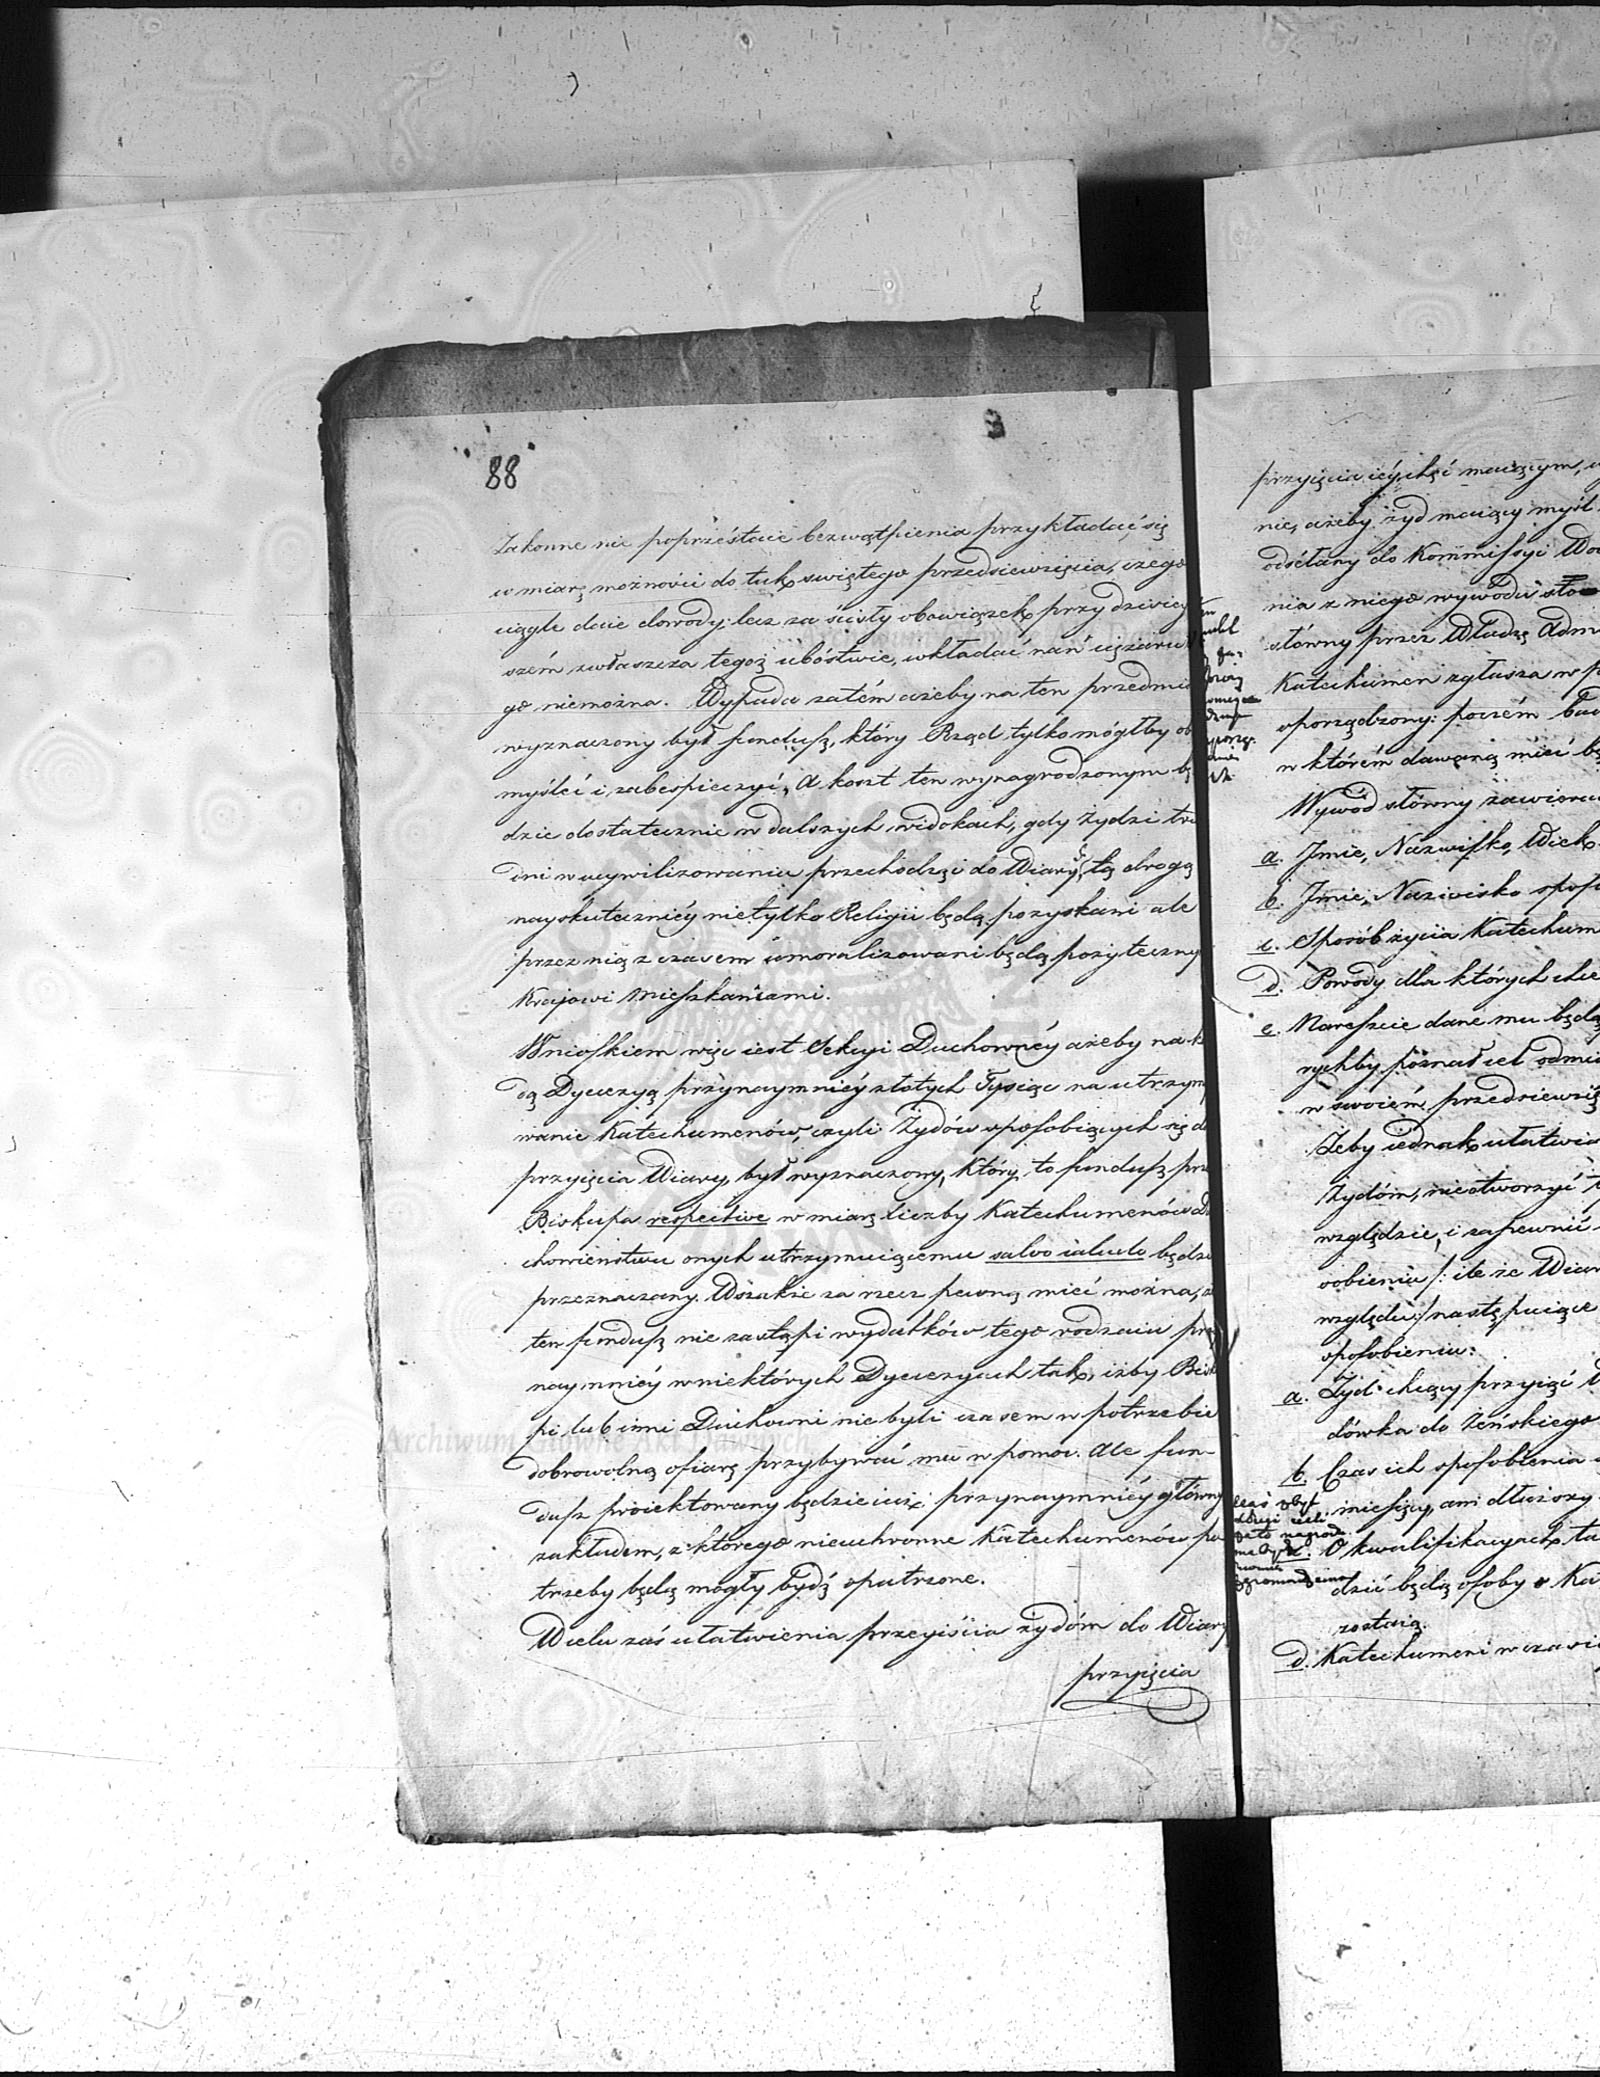 88
Zakonne nie poprzéstaie bezwątpienia przykładać się
w miarę możności do tak swiętego przedsiewzięcia, czego
ciągłe daie dowody: lecz za ścisły obowiązek przy dzisiey
szém zwłaszcza tegoż ubóstwie, wkładać nań ciężaru te
go niemożna. Wypada zatém ażeby na ten przedmi
wyznaczony był fundusz, który Rząd tylko mógłby ob
myśleć i zabespieczyć, a koszt ten wynagrodzonym bę
dzie dostatecznie w dalszych widokach, gdy Żydzi tru
dni w ucywilizowaniu przechodząc do Wiary tą drogą
nayskuteczniéy nietylko Religii będą pozyskani ale
przez nią z czasem umoralizowani będą pożyteczny
Krajowi Mieszkańcami.
Wnioskiem więc iest Sekcyi Duchownéy ażeby na k
dą Dyecezyą przynaymniéy złotych Tysiąc na utrzym
wanie Katechumenów, czyli Żydów sposobiących się d
przyięcia Wiary, był wyznaczony, który to fundusz prz
Biskupa respective w miarę liczby Katechumenów D
chowieństwu onych utrzymuiącemu salvo calculo będzi
przeznaczany. Wszakże za rzecz pewną mieć można, ż
ten fundusz nie zastąpi wydatków tego rodzaiu prz
naymniéy w niektórych Dyecezyach tak, iżby Bisk
pi lub inni Duchowni nie byli czasem w potrzebie
dobrowolną ofiarą przybywać mu w pomoc. Ale fun-
dusz proiektowany będzie iuż przynaymniéy główny
zakładem, z którego nieuchronne Katechumenów po
trzeby będą mogły bydź opatrzone.
W celu zaś ułatwienia przeyiścia żydóm do Wiary
przyięcia
przyięcia iéy chęć maiącym, w
nie, ażeby żyd maiący myśl
odsełany do Kommissyi Wo
nia z niego wywodu sło
słówny przez Władzę Adm
Katechumen zgłasza w p
sporządzony: poczém
w którém dawaną mieć bę
Wywód słówny zawiera
a. Jmie, Nazwisko, Wiek
b. Jmie, Nazwisko sposo
c. Sposób życia Katechum
d. Powody dla których chce
e. Nareszcie dane mu będą
rychby poznał cel odmia
w swoiém przedsiewzię
Żeby iednak ułatwia
Żydóm, nieotworzyć
względzie, i zapewnić
sobieniu /: ile że Wiar
względu :/ następuiące
sposobieniu:
a. Żyd chcący przyiąć W
dówka do Żeńskiego
b. Czas ich sposobienia
miesięcy, ani dłuższy
czas zbyt
długi
c. O kwalifikacyach ta
dzić będą osoby o Ka
zostaią.
d. Katechumeni w czasie